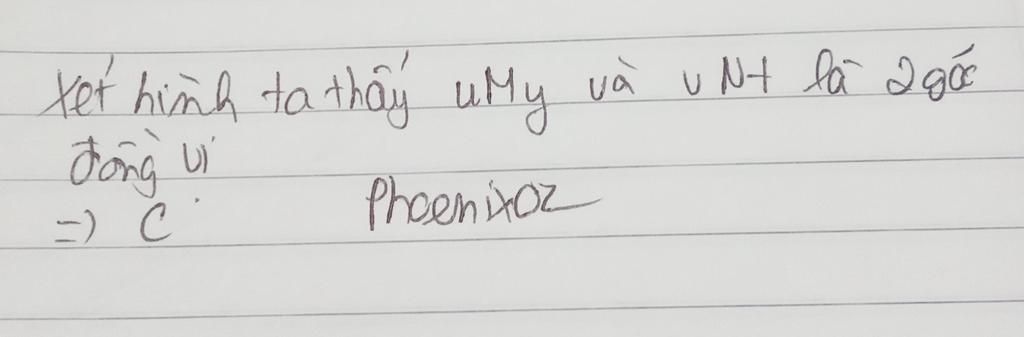 Xét hình ta thấy uMy và vNt là 2 góc
đồng vị
=> C Phoenixoz